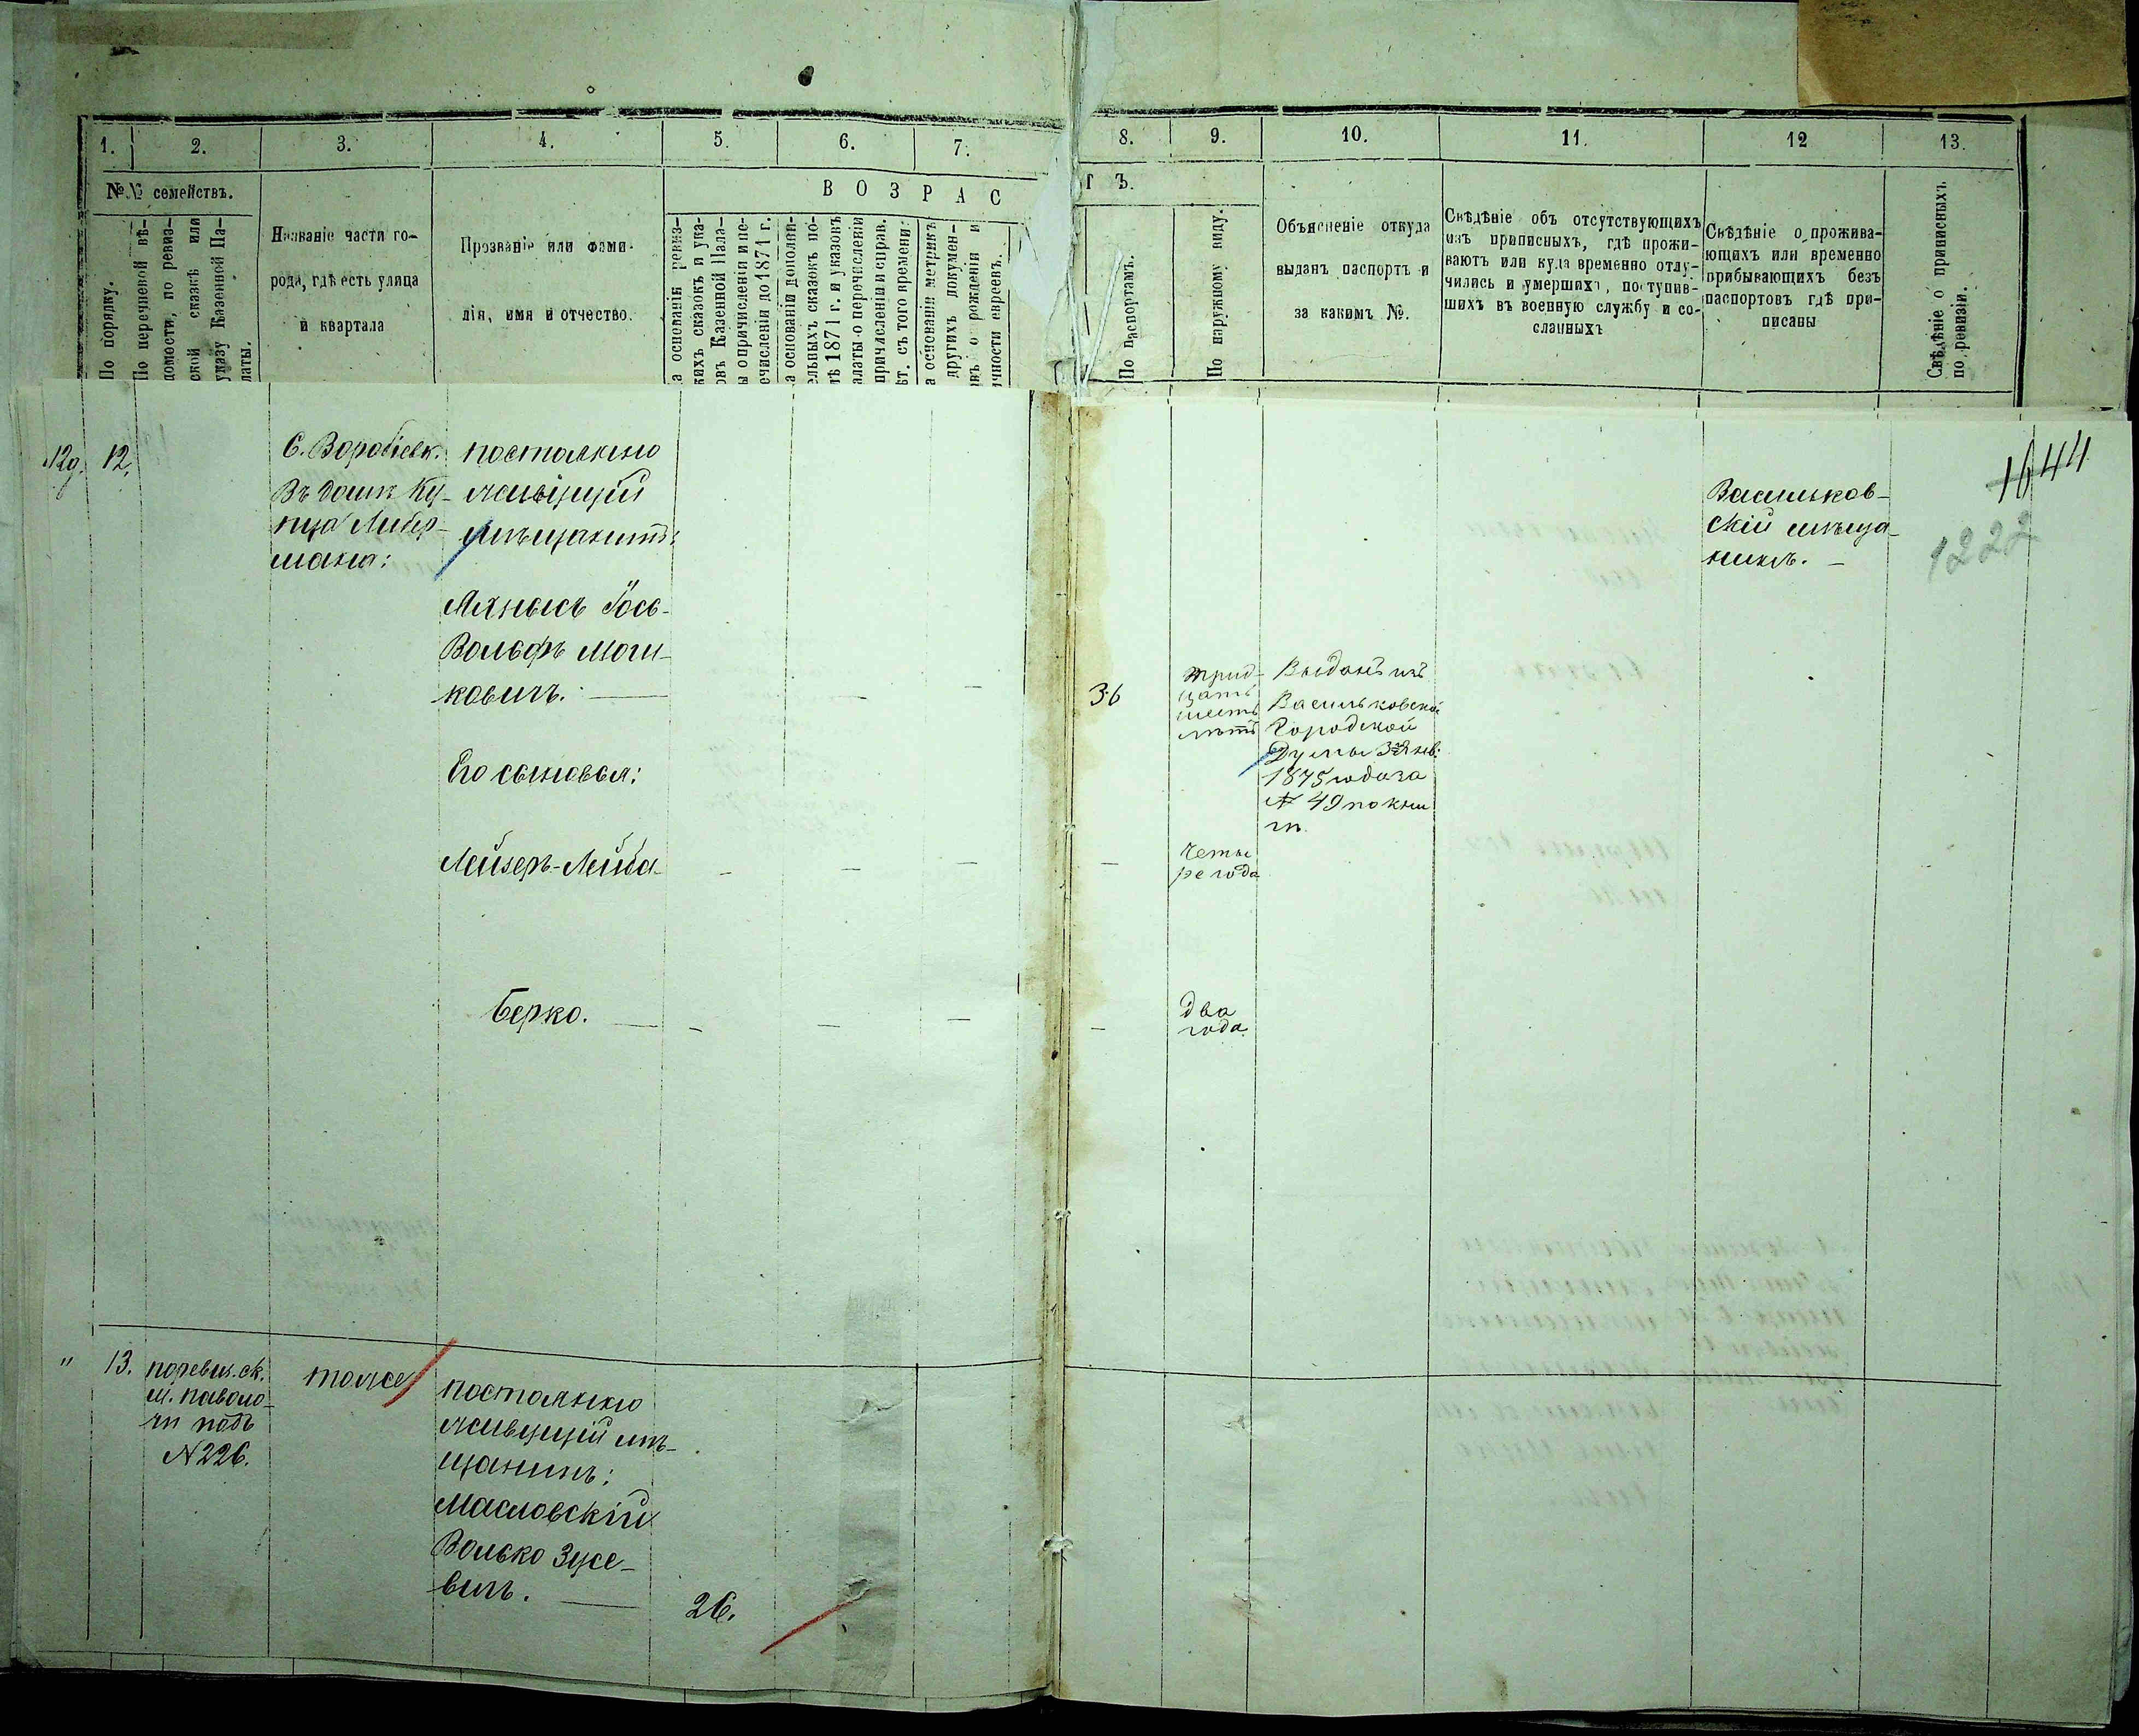 1.
2.
3.
4.
5.
6.
7.
8.
9.
10.
11.
12
13.
№№ семействъ.
ВОЗРАС
ТЪ.
По порядку.
По перечневой вѣ-
домости, по ревиз-
ской сказкѣ или
указу Казенной Па-
латы.
Названіе части го-
рода, гдѣ есть улица
и квартала
Прозваніе или фами-
лія, имя и отчество.
а основаніи ревиз-
кихъ сказокъ и ука-
овъ Казенной Пала-
ы о причисленіи и пе-
ечисленіи до 1871 г.
а основаніи дополни-
ельныхъ сказокъ по-
лѣ 1871 г. и указовъ
алаты о перечисленіи
причисленіи и справ.
ѣт. съ того времени.
а основаніи метрикъ
другихъ докумен-
овъ о рожденіи и
ичности евреевъ.
По паспортамъ.
По наружному виду.
Объясненіе откуда
выданъ паспортъ и
за какимъ №.
Свѣдѣніе объ отсутствующихъ
изъ приписныхъ, гдѣ прожи-
ваютъ или куда временно отлу-
чились и умершихъ, поступив-
шихъ въ военную службу и со-
сланныхъ
Свѣдѣніе о прожива-
ющихъ или временно
прибывающихъ безъ
паспортовъ гдѣ при-
писаны
Свѣдѣніе о приписныхъ
по ревизіи.
129. 12.
С. Воробіевк.
Въ домѣ Ку-
пца Либер-
мана:
постоянно
живущій
мѣщанинъ:
Іось-
Вольфъ Мош-
ковичъ.
36
трид-
цать
шесть
лѣтъ
Выданъ изъ
Васильковской
Городской
Думы 3 Янв.
1875 года за
№ 49 по кни
гѣ.
Васильков-
скій мѣща-
нинъ.
1644
1222
Его сыновья:
Лейзеръ-Лейба
четы
ре года
Берко.
два
года
" 13.
по ревиз. ск.
м. Паволо-
чи подъ
№ 226.
тоже
постоянно
живущій мѣ-
щанинъ:
Масловскій
Волько Зусе-
вичъ.
26.